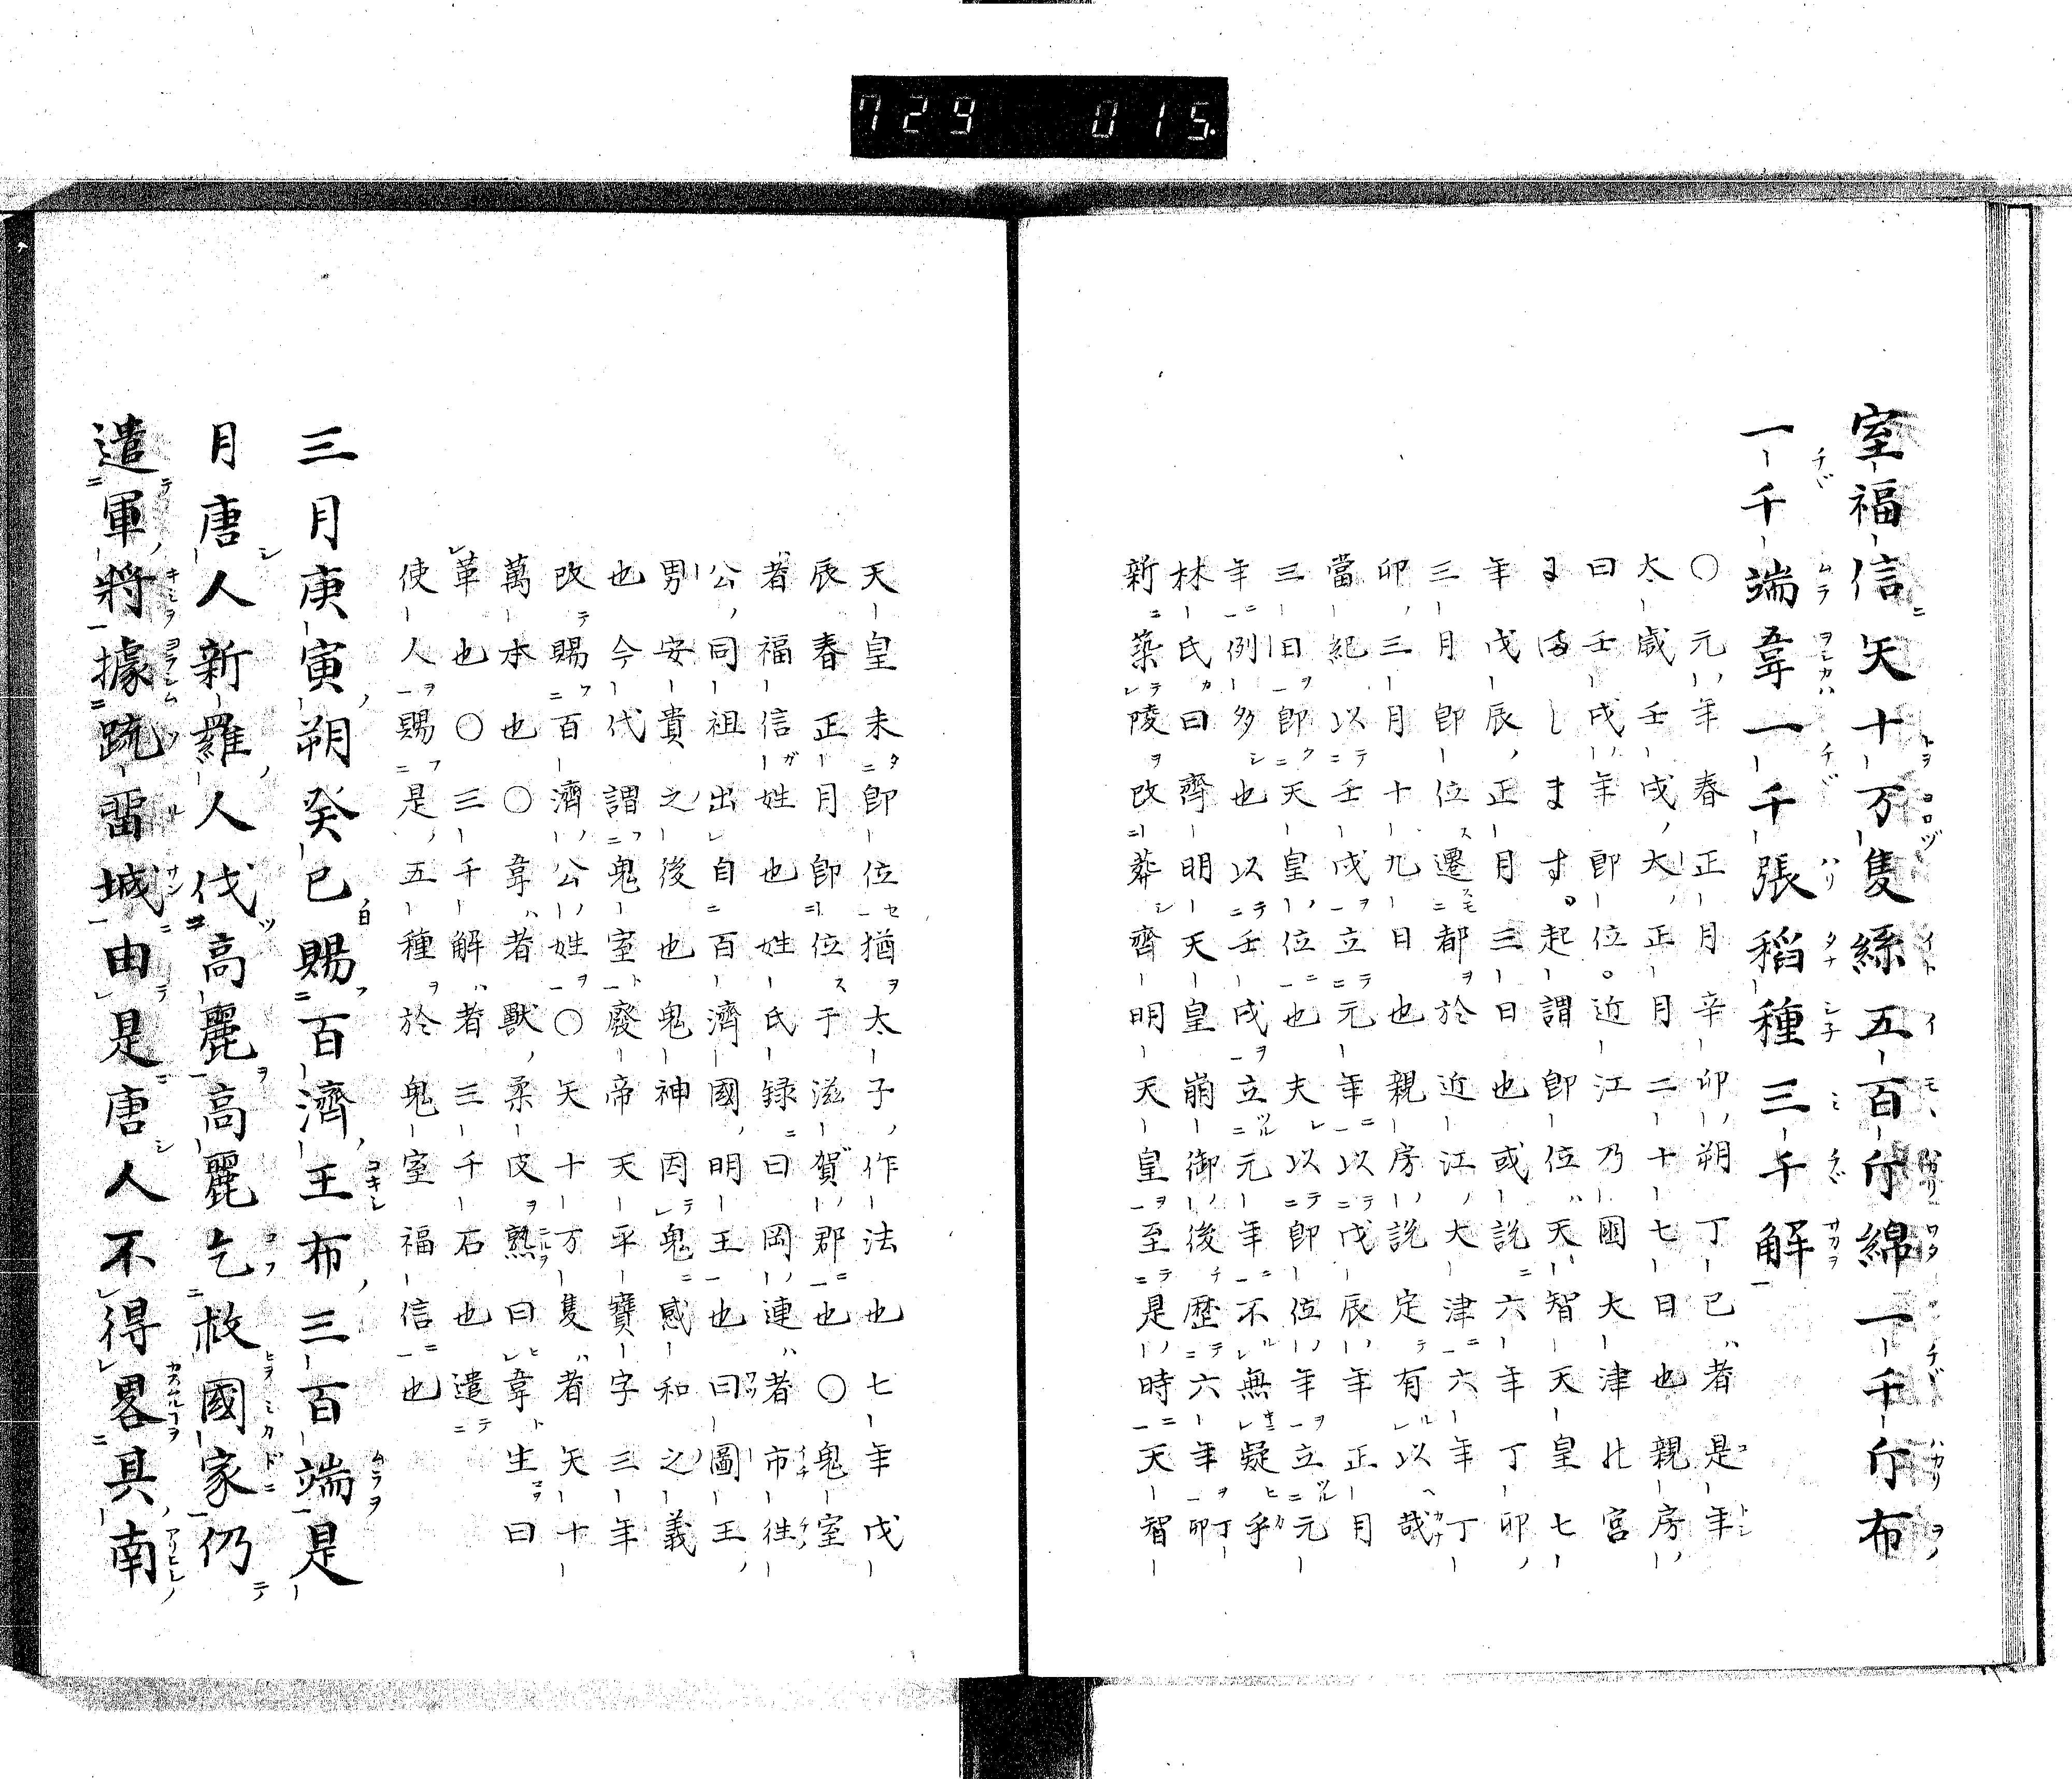 729 015
室福信矢十万隻絲五百斤綿一千斤布
一千端韋一千張稻種三千解
〇元年春正月辛卯朔丁巳者是年
太歲壬戌大正月二十七日也親房
曰壬戌年即位。近江乃國大津北宮
にまします。起謂即位天智天皇七
年戊辰正月三日也或説六年丁卯
三月即位遷都於近江大津六年丁
卯三月十九日也親房説定有以哉
當紀以壬戌立元年以戊辰年正月
三日即天皇位也夫以即位年立元
年例多也以壬戌立元年不無疑乎
林氏曰齊明天皇崩御後歷六年丁卯
新築陵改葬齊明天皇至是時天智
天皇未即位猶太子作法也七年戊
辰春正月即位于滋賀郡也〇鬼室
者福信姓也姓氏録曰岡連者市徃
公同祖出自百濟國明王也曰圖王
男安貴之後也鬼神因鬼感和之義
也今代謂鬼室廢帝天平寶字三年
改賜百濟公姓〇矢十万隻者矢十
萬本也〇韋者獸柔皮熟曰韋生曰
革也〇三千解者三千石也遣
使人賜是五種於鬼室福信也
三月庚寅朔癸巳賜百濟王布三百端是
月唐人新羅人伐高麗高麗乞救國家仍
遣軍將據䟽畱城由是唐人不得畧其南